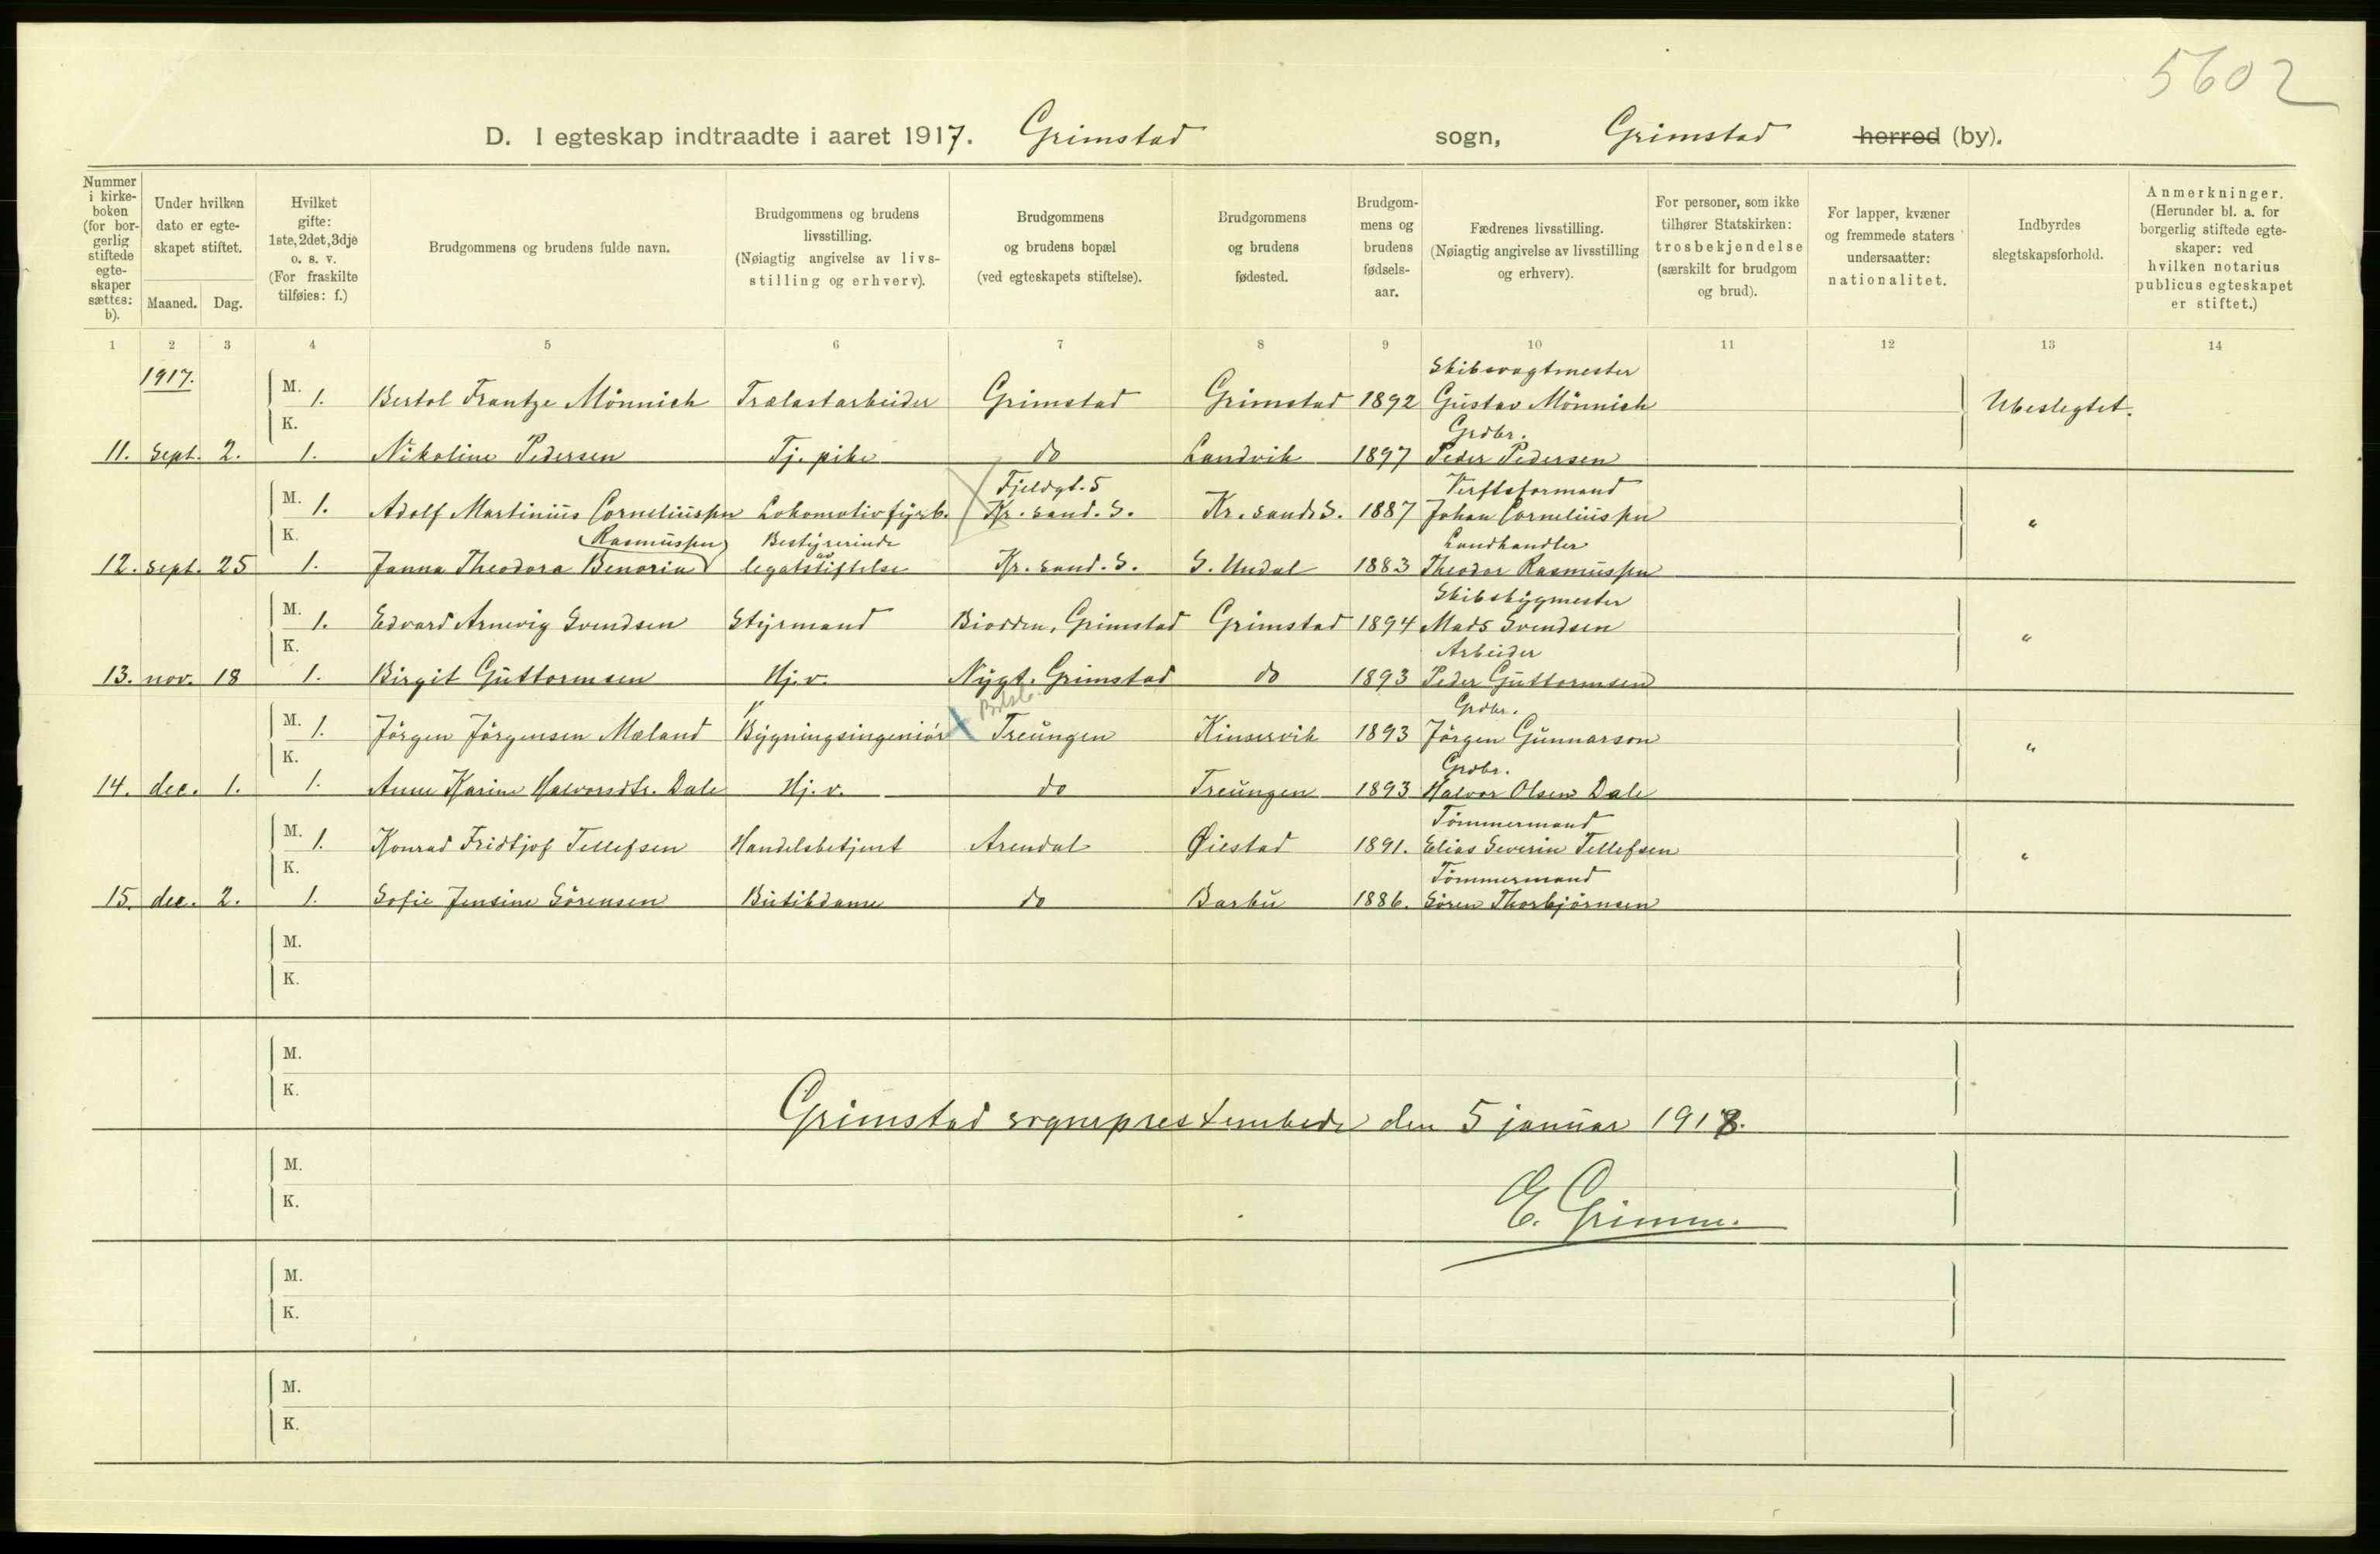 5602
D. I egteskap indtraadte i aaret 1917. Grimstad sogn, Grimstad herred (by).
Nummer i kirke-boken (for bor-gerlig stiftede egte-skaper sættes: b).
Under hvilken dato er egte-skapet stiftet.
Maaned. Dag.
Hvilket gifte: 1ste, 2det, 3dje o. s. v. (For fraskilte tilføies: f.)
Brudgommens og brudens fulde navn.
Brudgommens og brudens livsstilling. (Nøiagtig angivelse av livs-stilling og erhverv).
Brudgommens og brudens bopæl (ved egteskapets stiftelse).
Brudgommens og brudens fødested.
Brudgom-mens og brudens fødsels-aar.
Fædrenes livsstilling. (Nøiagtig angivelse av livsstilling og erhverv).
For personer, som ikke tilhører Statskirken: trosbekjendelse (særskilt for brudgom og brud).
For lapper, kvæner og fremmede staters undersaatter: nationalitet.
Indbyrdes slegtskapsforhold.
Anmerkninger. (Herunder bl. a. for borgerlig stiftede egte-skaper: ved hvilken notarius publicus egteskapet er stiftet.)
1 2 3 4 5 6 7 8 9 10 11 12 13 14
1917.
Skibsvagtmester
M. 1. Bertol Frantze Mönnich Trælastarbeider Grimstad Grimstad 1892 Gustav Mönnich Ubeslegtet.
Grdbr.
11. Sept. 2. K. 1. Nikoline Pedersen Tj. pike do Landvik 1897 Peder Pedersen
Fjeldgt. 5 Verftsformand
M. 1. Adolf Martinius Corneliussen Lokomotivfyrb. Kr. sand. S. Kr. sand S. 1887 Johan Corneliussen "
Rasmussen Bestyrerinde Landhandler
12. sept. 25 K. 1. Janna Theodora Benoria av legatstiftelse Kr. sand. S. S. Undal 1883 Theodor Rasmussen
Skibsbygmester
M. 1. Edvard Arnevig Svendsen Styrmand Biodden, Grimstad Grimstad 1894 Mads Svendsen "
Arbeider
13. nov. 18 K. 1. Birgit Guttormsen Hj. v. Nygt. Grimstad do 1893 Peder Guttormsen
Grdbr.
M. 1. Jörgen Jörgensen Mæland Bygningsingeniör Treungen Kinservik 1893 Jörgen Gunnarson "
Grdbr.
14. dec. 1. K. 1. Anne Karine Halvorsdtr. Dale Hj. v. do Treungen 1893 Halvor Olsen Dale
Tömmermand
M. 1. Konrad Fridtjof Tellefsen Handelsbetjent Arendal Øiestad 1891. Elias Severin Tellefsen "
Tömmermand
15. dec. 2. K. 1. Sofie Jensine Sörensen Butikdame do Barbu 1886. Sören Thorbjörnsen
M.
K.
M.
K.
Grimstad sogneprestembede den 5 januar 1918.
M.
K.
E. Grimm.
M.
K.
M.
K.